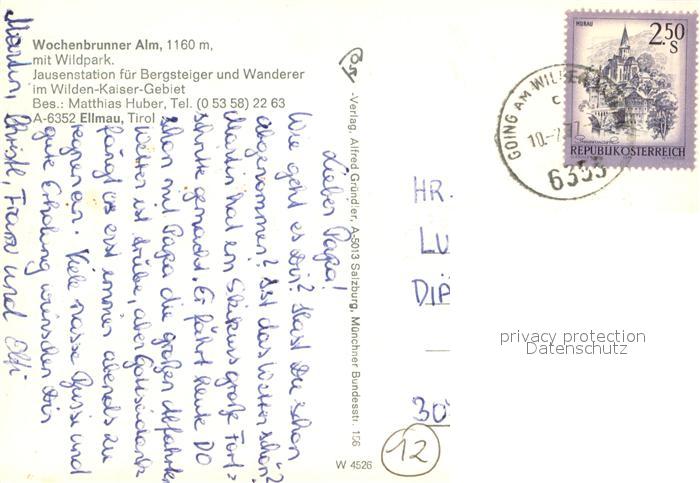 Wochenbrunner Alm, 1160 m,
mit Wildpark.
Jausenstation für Bergsteiger und Wanderer
im Wilden-Kaiser-Gebiet
Bes.: Matthias Huber, Tel. (0 53 58) 22 63
A-6352 Ellmau, Tirol
-Verlag, Alfred Gründler, A-5013 Salzburg, Münchner Bundesstr. 156
W 4526
Lieber Papa!
Wie geht es Dir? Hast Du schon
abgenommen? Ist das Wetter schön?
Martin hat im Skikurs große Fort-
schritte gemacht. Er fährt heute
schon mit Papa die großen Abfahrten
Wetter ist trübe, aber Gottseidank
fängt es erst immer abends zu
regnen an. Viele nasse Bussi und
gute Erholung wünschen Dir
Martin, Christl, Franz und Elfi
MURAU
2.50
S
REPUBLIK ÖSTERREICH
GOING AM WILDEN
6353
HR.
LU
DIP
30
12
privacy protection
Datenschutz